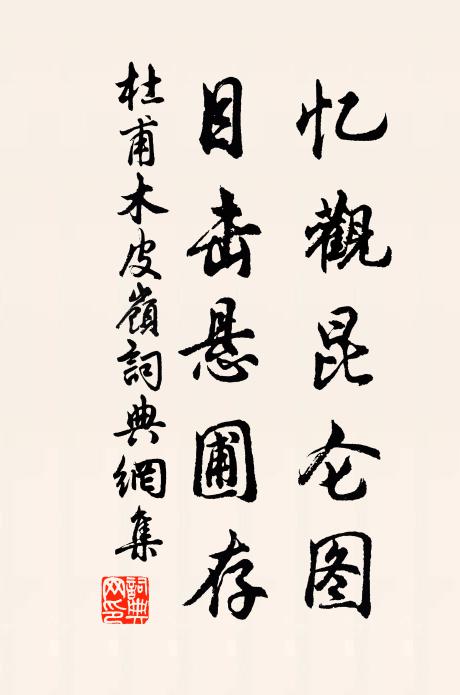 忆觀昆仑图
目击悬圃存
杜甫木皮嶺詞典網集
詞典网印